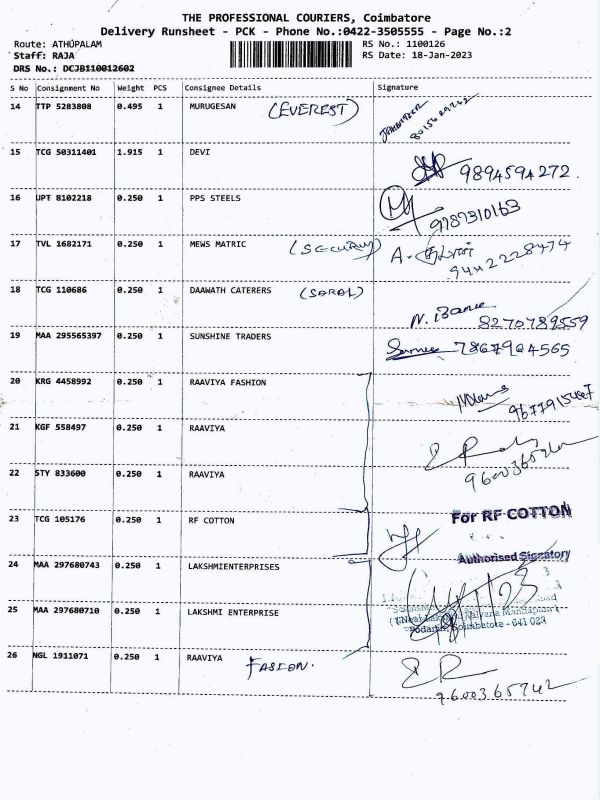 THE PROFESSIONAL COURIERS, Coimbatore
Delivery Runsheet - PCK - Phone No.:0422-3505555 - Page No.:2
Route: ATHUPALAM RS No.: 1100126
Staff: RAJA RS Date: 18-Jan-2023
DRS No.: DCJB110012602
S No Consignment No Weight PCS Consignee Details Signature
14 TTP 5283808 0.495 1 MURUGESAN (EVEREST)
15 TCG 50311401 1.915 1 DEVI 9894594272.
16 UPT 8102218 0.250 1 PPS STEELS 9787310163
17 TVL 1682171 0.250 1 MEWS MATRIC (SECURITY) A.
9442228474
18 TCG 110686 0.250 1 DAAWATH CATERERS
8270789559
19 MAA 295565397 0.250 1 SUNSHINE TRADERS 7867964565
20 KRG 4458992 0.250 1 RAAVIYA FASHION
21 KGF 558497 0.250 1 RAAVIYA
22 STY 833600 0.250 1 RAAVIYA
23 TCG 105176 0.250 1 RF COTTON For RF COTTON
Authorised Signatory
24 MAA 297680743 0.250 1 LAKSHMIENTERPRISES
25 MAA 297680710 0.250 1 LAKSHMI ENTERPRISE
Coimbatore - 641 023
26 NGL 1911071 0.250 1 RAAVIYA FASION.
9600365742